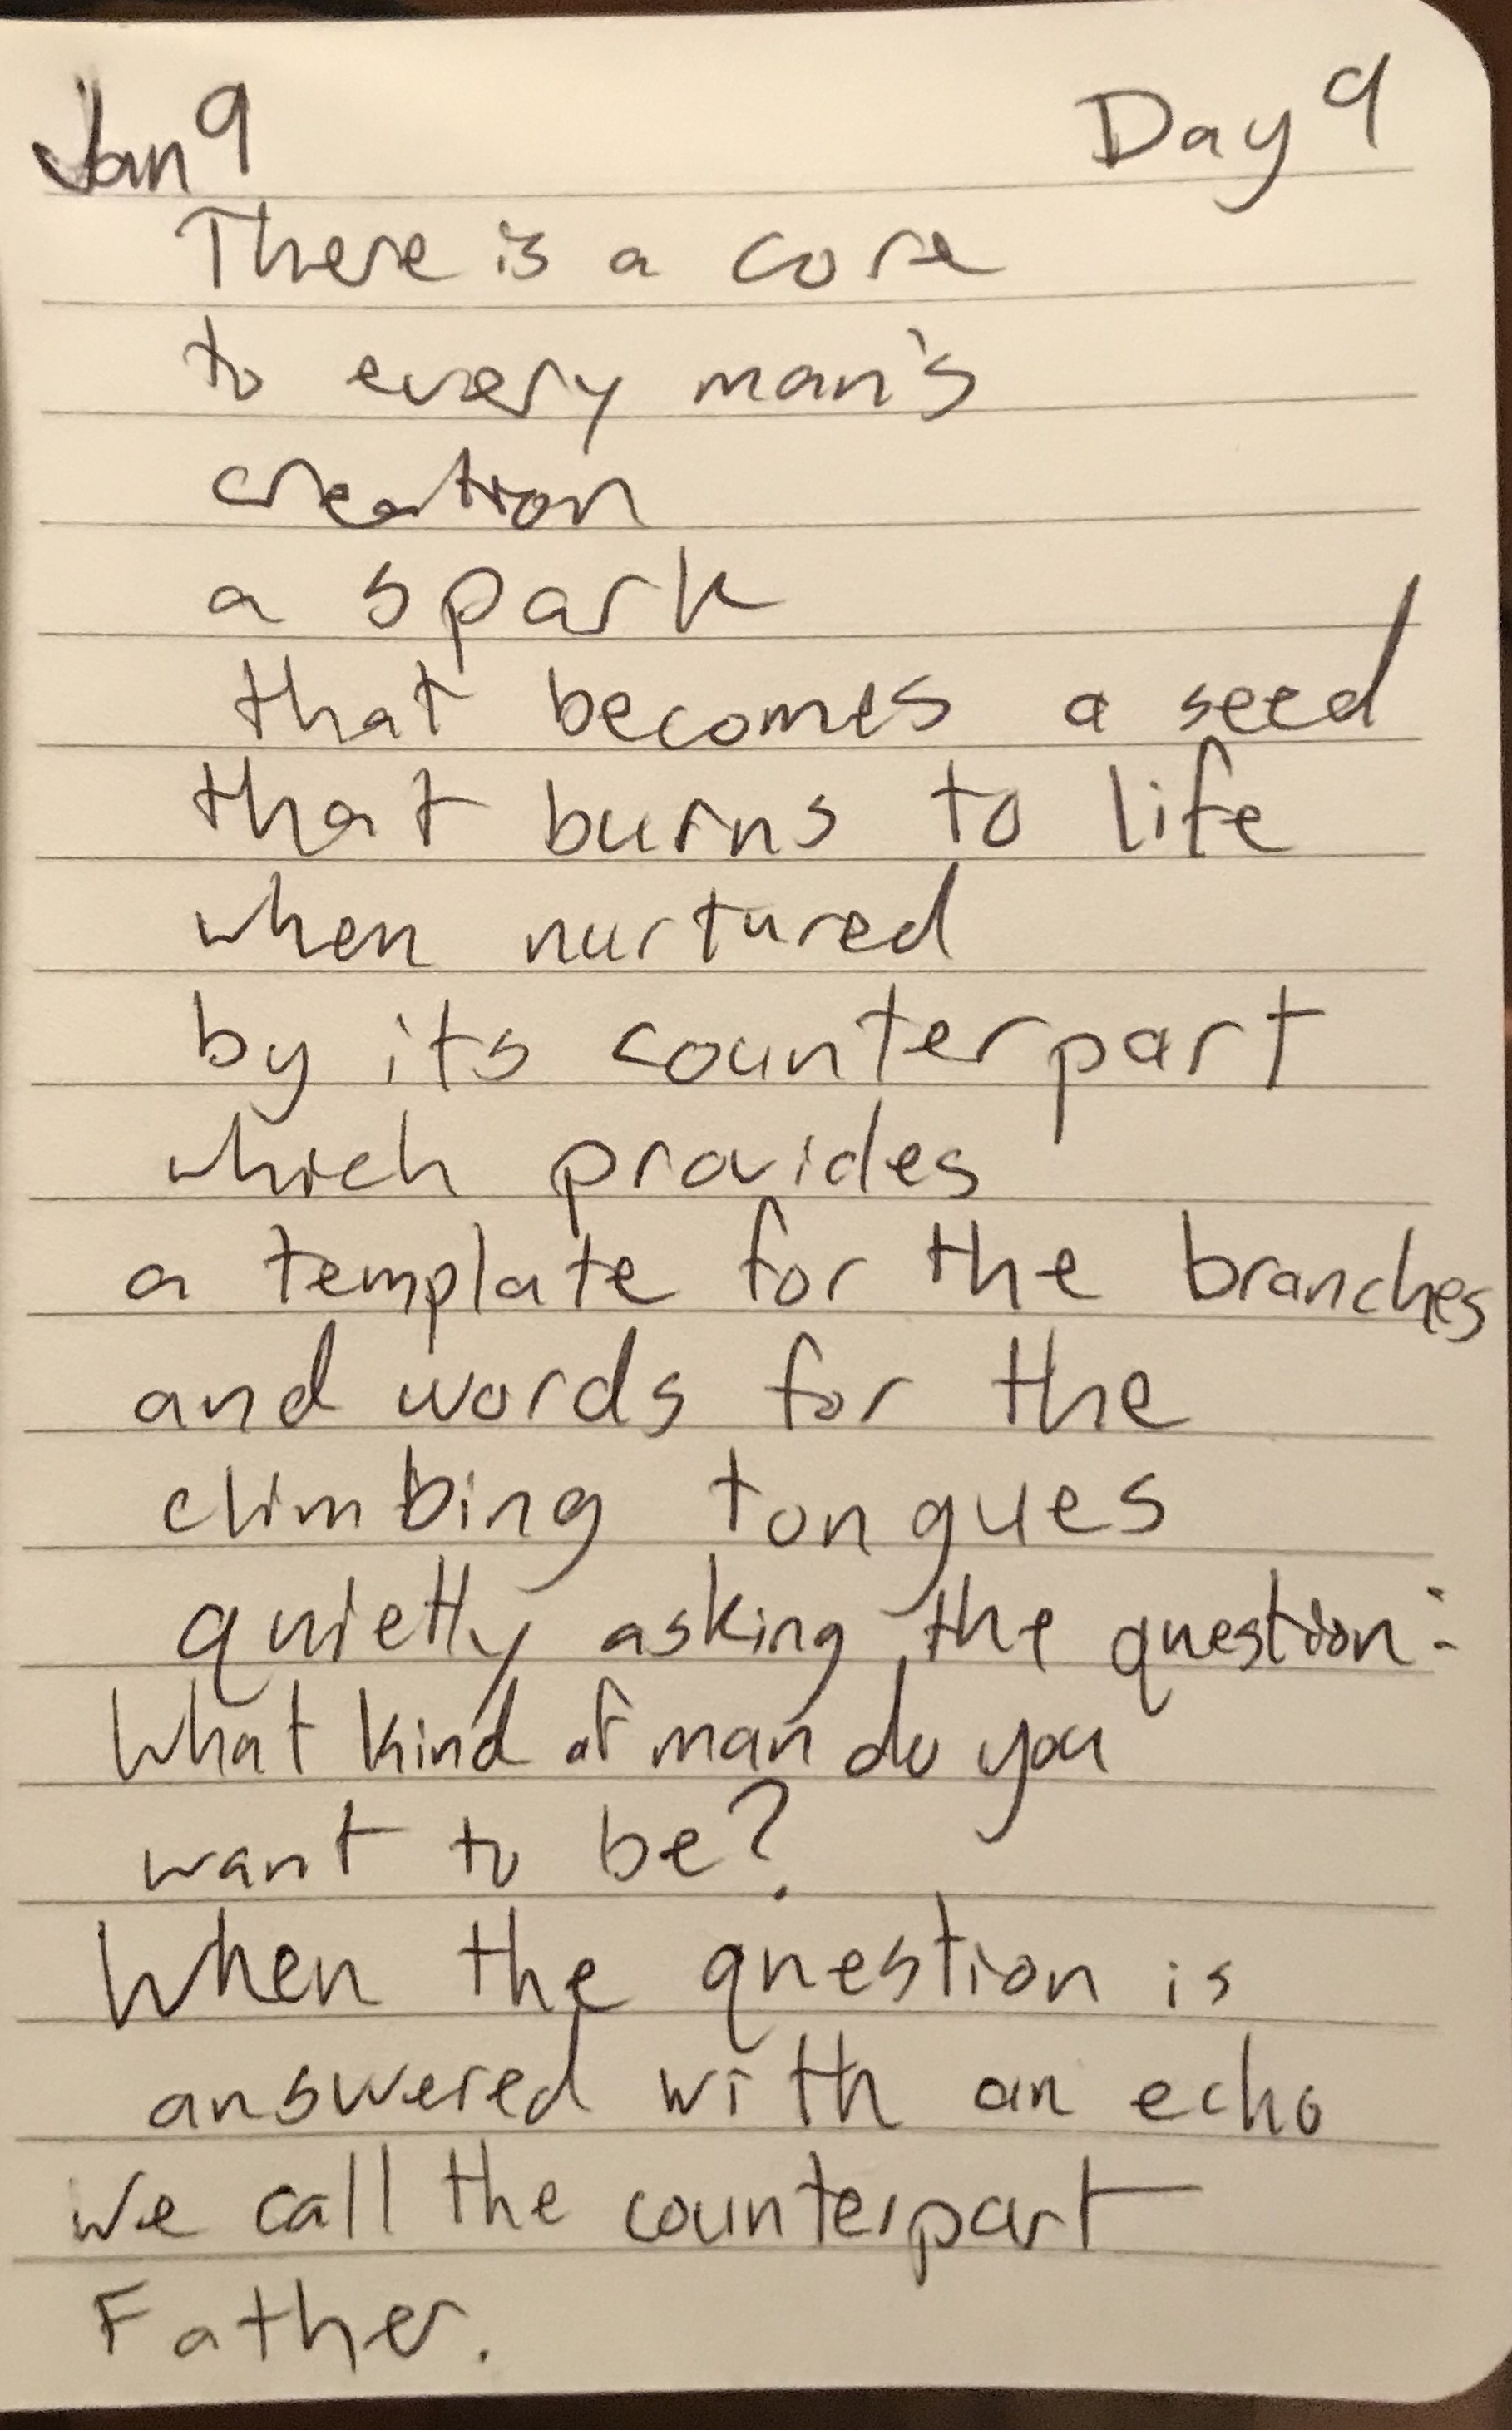 Jan 9 Day 9
There is a core
to every man's
creation
a spark
that becomes a seed
that burns to life
when nurtured
by its counterpart
which provides
a template for the branches
and words for the
climbing tongues
quietly asking the question:
What kind of man do you
want to be?
When the question is
answered with an echo
we call the counterpart
Father.